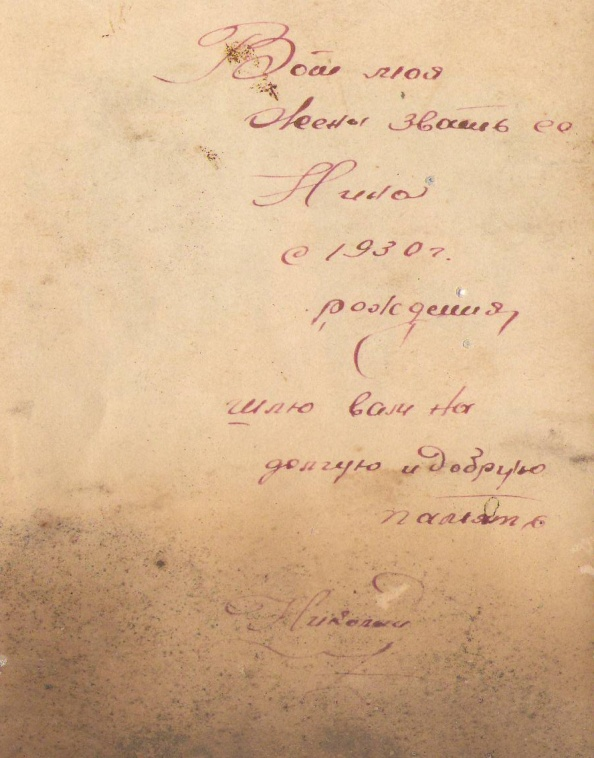 Вот моя
жены звать ео
Нина
с 1930 г.
рождения,
шлю вам на
долгую и добрую
память
Николай